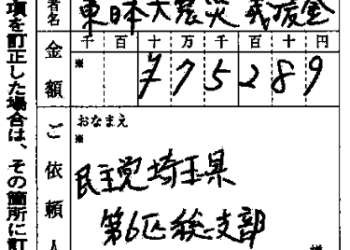 者名 東日本大震災義援金
千 百 十 万 千 百 十 円
金額 ※ 775289
おなまえ
※
ご依頼人
民主党埼玉県
第6区総支部
様
項を訂正した場合は、その箇所に訂